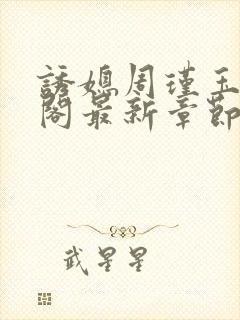 誘媳周瑾玉
閣最新章節
武星星